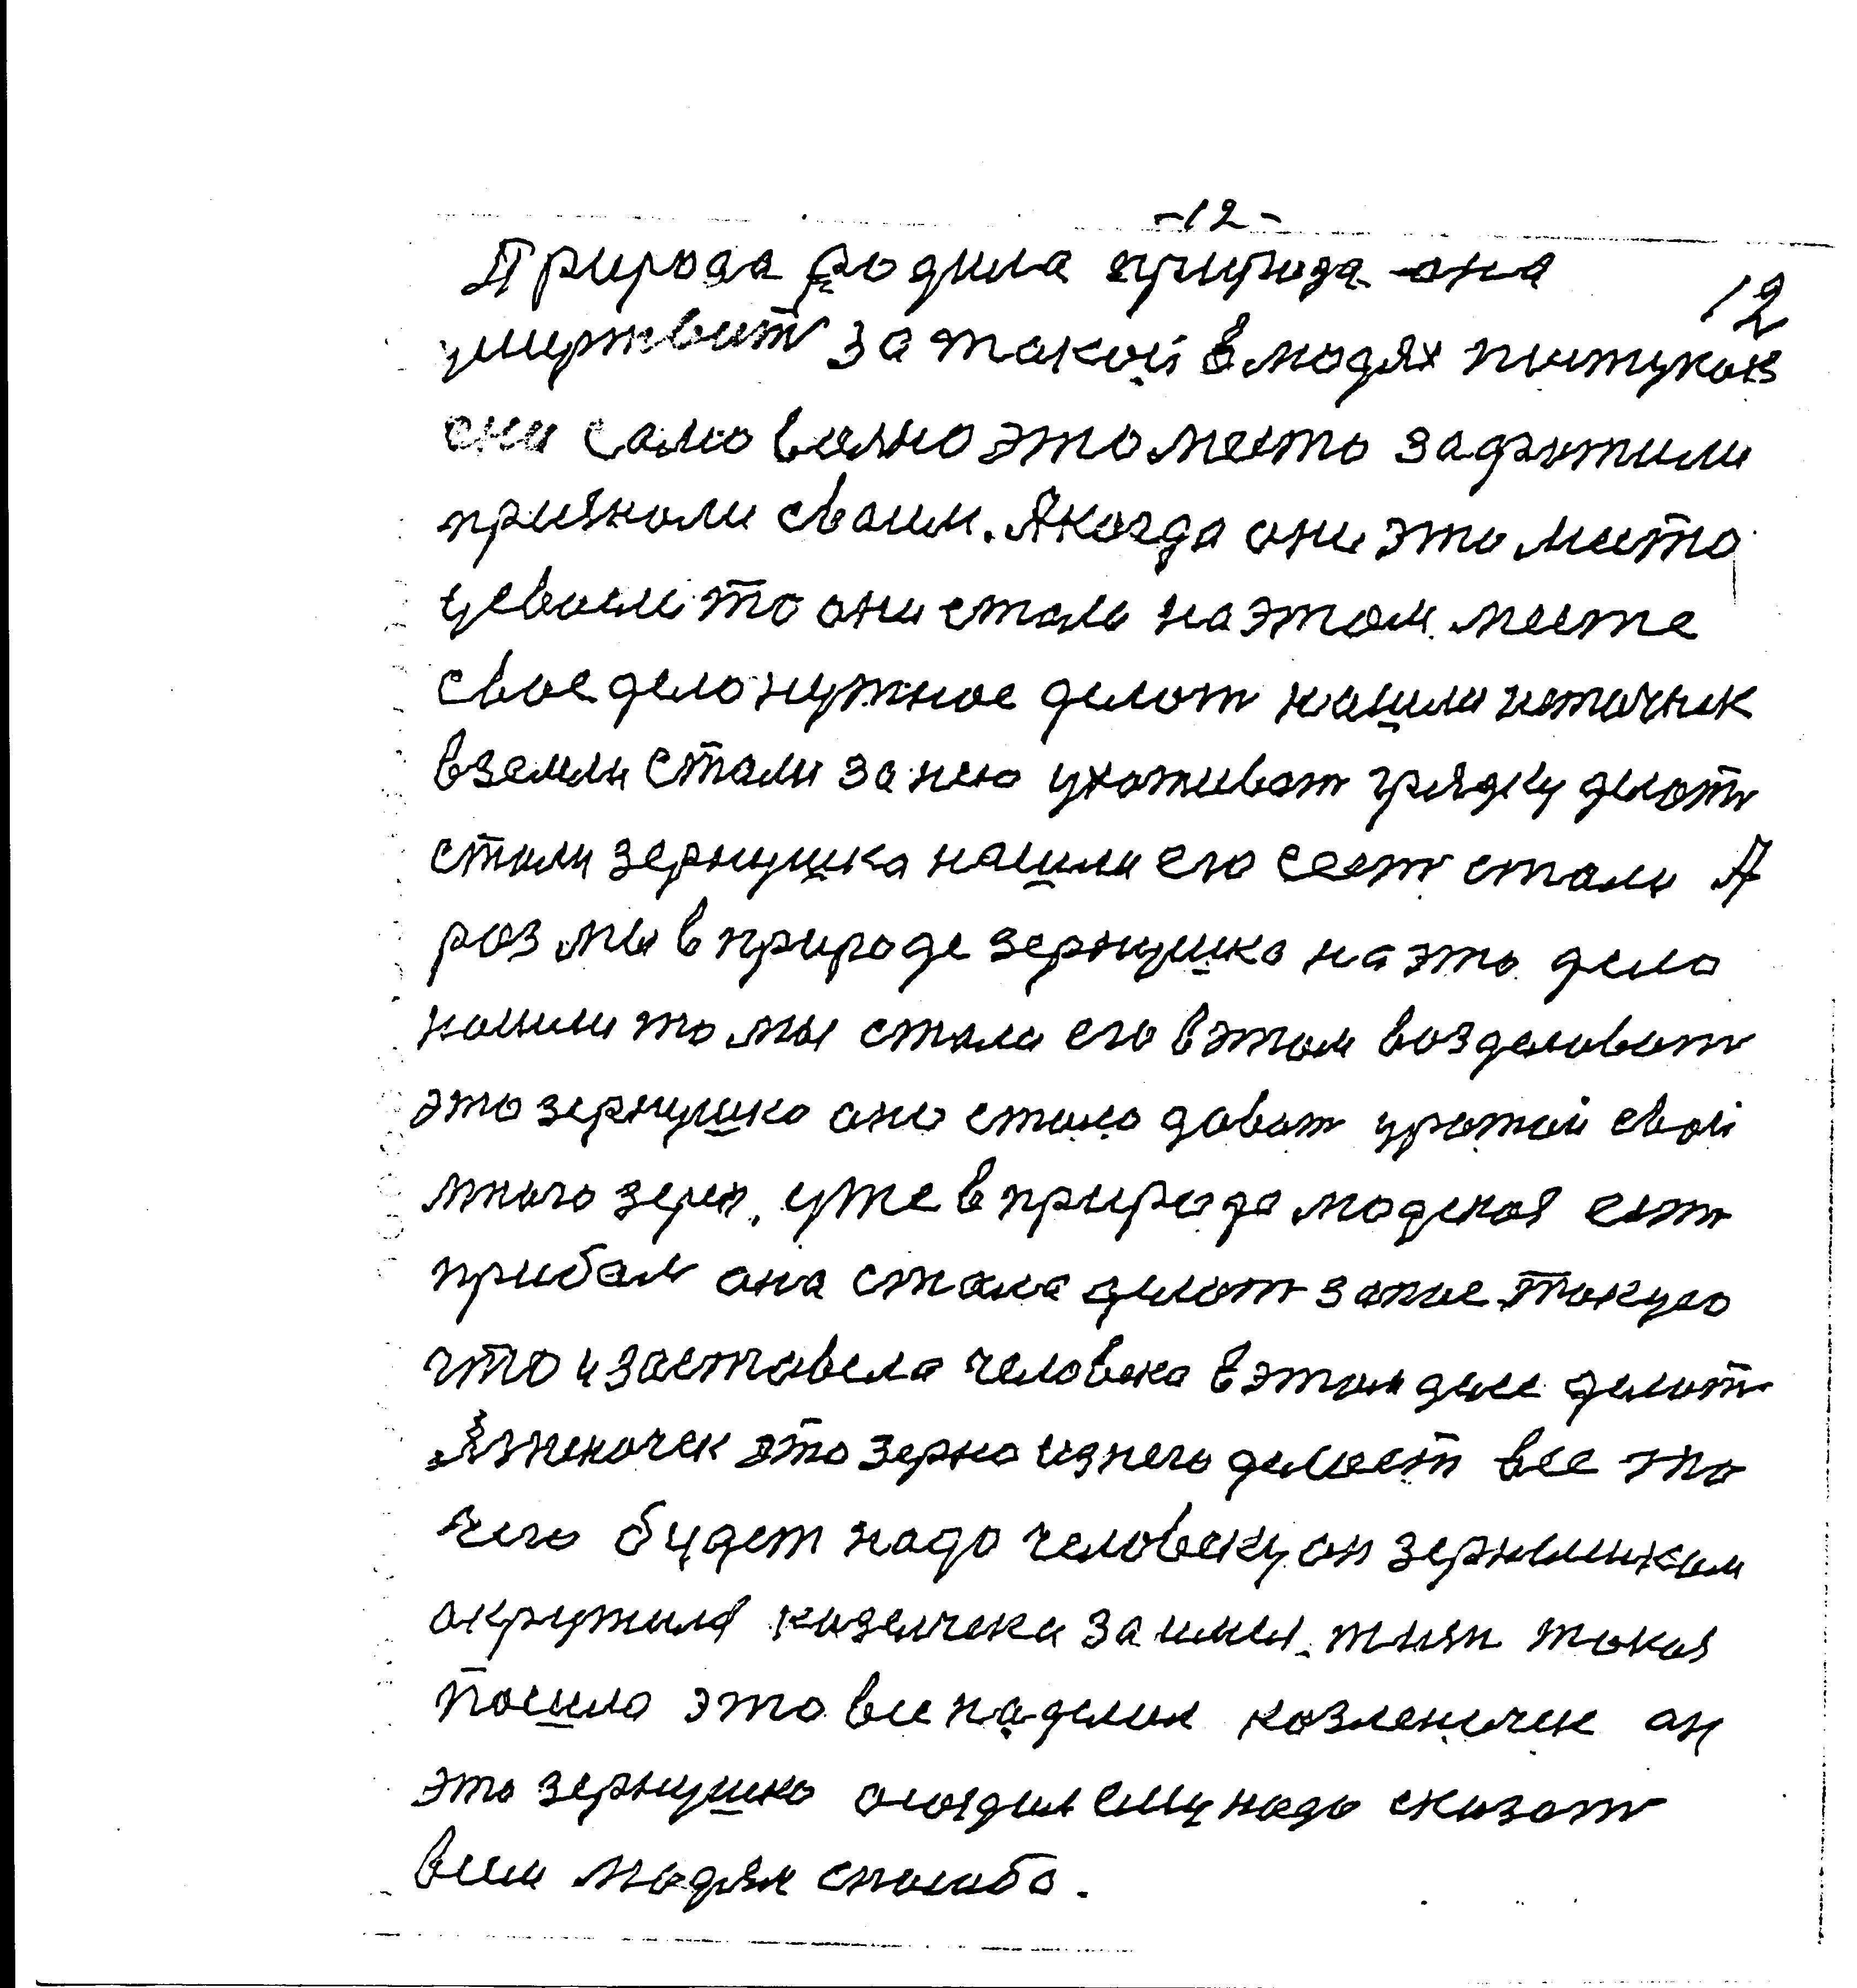 -12-
Природа родила природа она
12
умертвит за такой в людях поступок
они само вольно это место захватили
признали своим. А когда они это место
усвоили то они стали на этом месте
свое дело нужное делат нашли источник
в земли стали за нею ухаживат грядку делат
стали зернушка нашли его сеят стали А
раз мы в природе зернушко на это дело
нашли то мы стали его в этом возделоват
это зернушко оно стало дават урожай свой
много зерен, уже в природе людская ест
прибыл она стала делат запас такую
что и заставела человека в этом деле делат
это зерно из него делает все то
чего будет надо человеку он зернышком
окружил за шил такая
пошло это все наделил он
это зернушко ему надо сказат
всем людям спасибо.